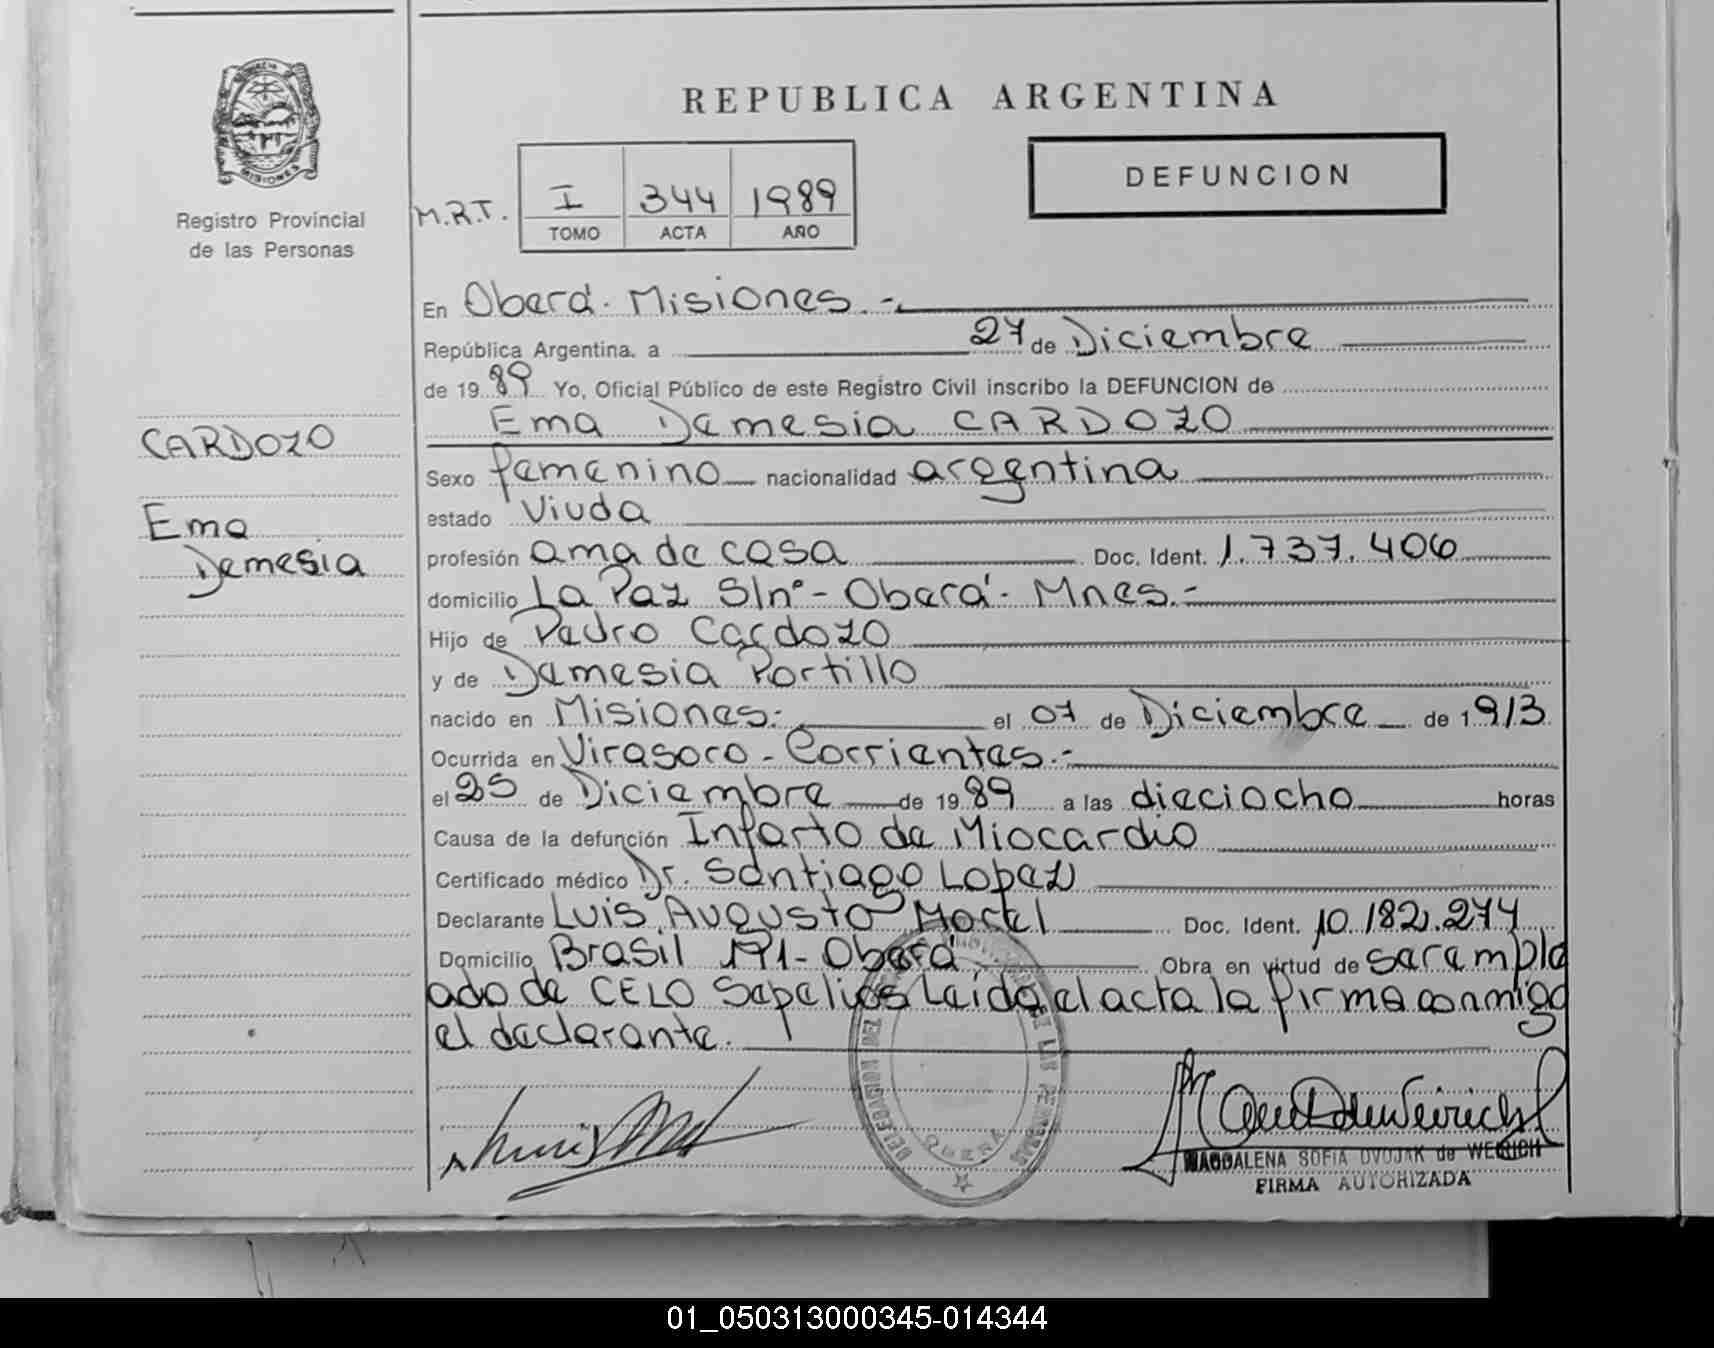 REPUBLICA ARGENTINA
PROVINCIA DE MISIONES
Registro Provincial
de las Personas
M.R.T.
I 344 1989
TOMO ACTA AÑO
DEFUNCION
En Oberá - Misiones.-
República Argentina, a 27 de Diciembre
de 1989 Yo, Oficial Público de este Registro Civil inscribo la DEFUNCION de
Ema Demesia CARDOZO
CARDOZO
Ema
Demesia
Sexo femenino nacionalidad argentina
estado Viuda
profesión ama de casa Doc. Ident. 1.737.406
domicilio La Paz S/nº - Oberá - Mnes.-
Hijo de Pedro Cardozo
y de Demesia Portillo
nacido en Misiones.- el 07 de Diciembre de 1913
Ocurrida en Virasoro - Corrientes.-
el 25 de Diciembre de 1989 a las dieciocho horas
Causa de la defunción Infarto de Miocardio
Certificado médico Dr. Santiago Lopez
Declarante Luis Augusto Mortel Doc. Ident. 10.182.274
Domicilio Brasil 191 - Oberá Obra en virtud de ser emple
ado de CELO Sepelios Leída el acta la firma conmigo
el declarante.
DELEGACION DEL REGISTRO PROVINCIAL DE LAS PERSONAS
OBERA
MAGDALENA SOFIA DVOJAK de WEIRICH
FIRMA AUTORIZADA
01_050313000345-014344